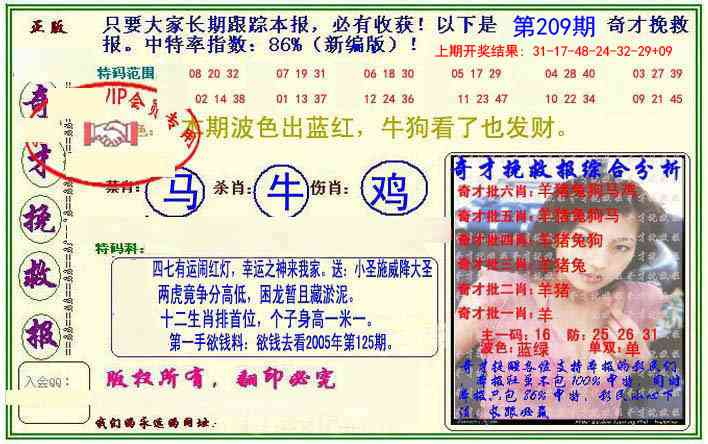 正版
只要大家长期跟踪本报，必有收获！以下是 第209期 奇才挽救
报。中特率指数：86%（新编版）！
上期开奖结果：31-17-48-24-32-29+09
特码范围
08 20 32 07 19 31 06 18 30 05 17 29 04 28 40 03 27 39
02 14 38 01 13 37 12 24 36 11 23 47 10 22 34 09 21 45
VIP会员专用
本期波色出蓝红，牛狗看了也发财。
奇才挽救报
禁肖：马 杀肖：牛 伤肖：鸡
特码料：
四七有运闹红灯，幸运之神来我家。送：小圣施威降大圣
两虎竟争分高低，困龙暂且藏淤泥。
十二生肖排首位，个子身高一米一。
第一手欲钱料：欲钱去看2005年第125期。
入会QQ：
版权所有，翻印必究
我们的永远的网址：
奇才挽救报综合分析
奇才批六肖：羊猪兔狗马鸡
奇才批五肖：羊猪兔狗马
奇才批四肖：羊猪兔狗
奇才批三肖：羊猪兔
奇才批二肖：羊猪
奇才批一肖：羊
主一码：16 防：25 26 31
波色：蓝绿 单双：单
奇才提醒各位支持本报的彩民们
本报担虽不包100%中特，同时
本报只包86%中特，彩民小心下
注，长跟必赢